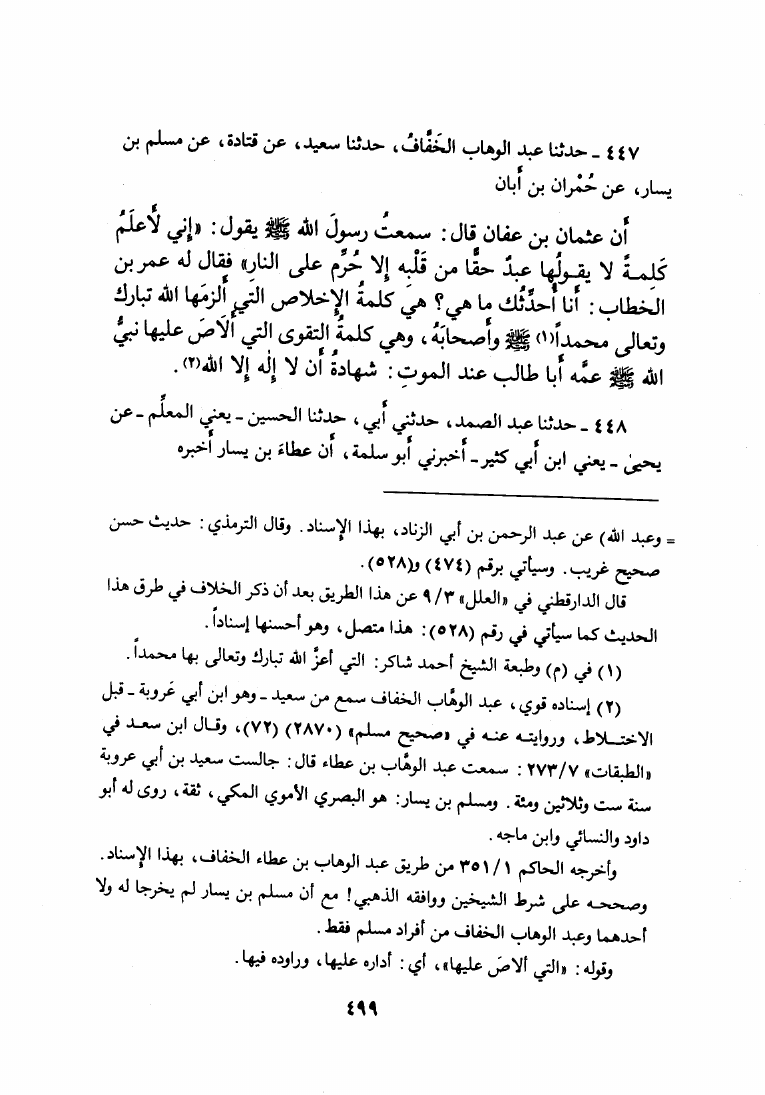 ٤٤٧ ـ حدثنا عبد الوهاب الخَفَّافُ، حدثنا سعيد، عن قتادة، عن مسلم بن
يسار، عن حُمْران بن أَبان
أَن عثمان بن عفان قال: سمعتُ رسولَ الله ﷺ يقول: «إِني لأَعلَمُ
كَلِمـةً لا يقـولُها عبدٌ حقًّا من قَلْبِه إِلا حُرِّم على النارِ» فقال له عمر بن
الخطاب: أَنا أُحدِّثُك ما هي؟ هي كلمةُ الإِخلاص التي أَلزمَها الله تبارك
وتعالى محمداً(١) ﷺ وأَصحابَهُ، وهي كلمةُ التقوى التي أَلَاصَ عليها نبيُّ
الله ﷺ عمَّه أَبا طالب عند الموتِ: شهادةُ أَن لا إِلٰه إِلا الله(٢).
٤٤٨ ـ حدثنا عبد الصمد، حدثني أَبي، حدثنا الحسين ـ يعني المعلِّم ـ عن
يحيىٰ ـ يعني ابن أَبي كثير ـ أَخبرني أَبو سلمة، أَن عطاءَ بن يسار أَخبره
= وعبد الله) عن عبد الرحمن بن أبي الزناد، بهذا الإِسناد. وقال الترمذي: حديث حسن
صحيح غريب. وسيأتي برقم (٤٧٤) و(٥٢٨).
قال الدارقطني في «العلل» ٩/٣ عن هذا الطريق بعد أن ذكر الخلاف في طرق هذا
الحديث كما سيأتي في رقم (٥٢٨): هذا متصل، وهو أحسنها إسناداً.
(١) في (م) وطبعة الشيخ أحمد شاكر: التي أعزَّ الله تبارك وتعالى بها محمداً.
(٢) إسناده قوي، عبد الوهَّاب الخفاف سمع من سعيد ـ وهو ابن أبي عَروبة ـ قبل
الاختـلاط، وروايتـه عنـه في «صحيح مسلم» (٢٨٧٠) (٧٢)، وقـال ابن سعـد في
«الطبقات» ٢٧٣/٧: سمعت عبد الوهَّاب بن عطاء قال: جالست سعيد بن أبي عروبة
سنة ست وثلاثين ومئة. ومسلم بن يسار: هو البصري الأموي المكي، ثقة، روى له أبو
داود والنسائي وابن ماجه.
وأخرجه الحاكم ٣٥١/١ من طريق عبد الوهاب بن عطاء الخفاف، بهذا الإِسناد.
وصححـه على شرط الشيخين ووافقه الذهبي! مع أن مسلم بن يسار لم يخرجا له ولا
أحدهما وعبد الوهاب الخفاف من أفراد مسلم فقط.
وقوله: «التي ألاصَ عليها»، أي: أداره عليها، وراوده فيها.
٤٩٩